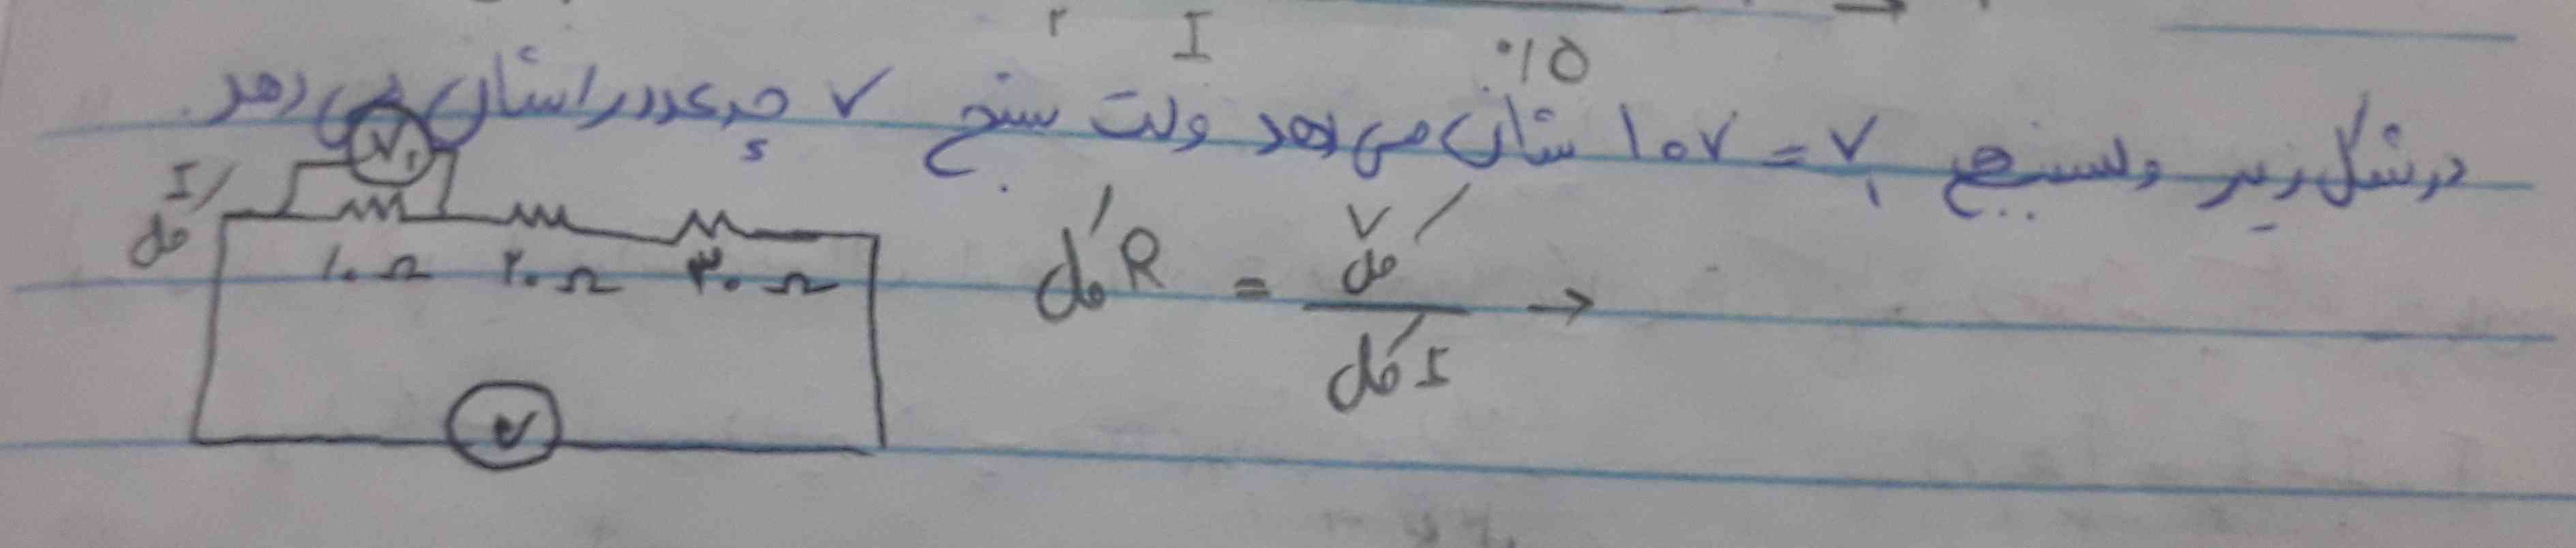 r I ۰/۱۵
در شکل زیر ولتسنج V₁ = ۱۰V نشان می دهد ولت سنج V چه عددی را نشان می دهد.
V₁
I کل
۱۰ Ω ۲۰ Ω ۳۰ Ω
R کل = V کل / I کل →
V